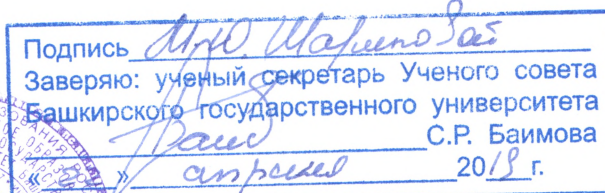 Подпись М.Ю. Шариповой
Заверяю: ученый секретарь Ученого совета
Башкирского государственного университета
С.Р. Баимова
« » апреля 2019 г.